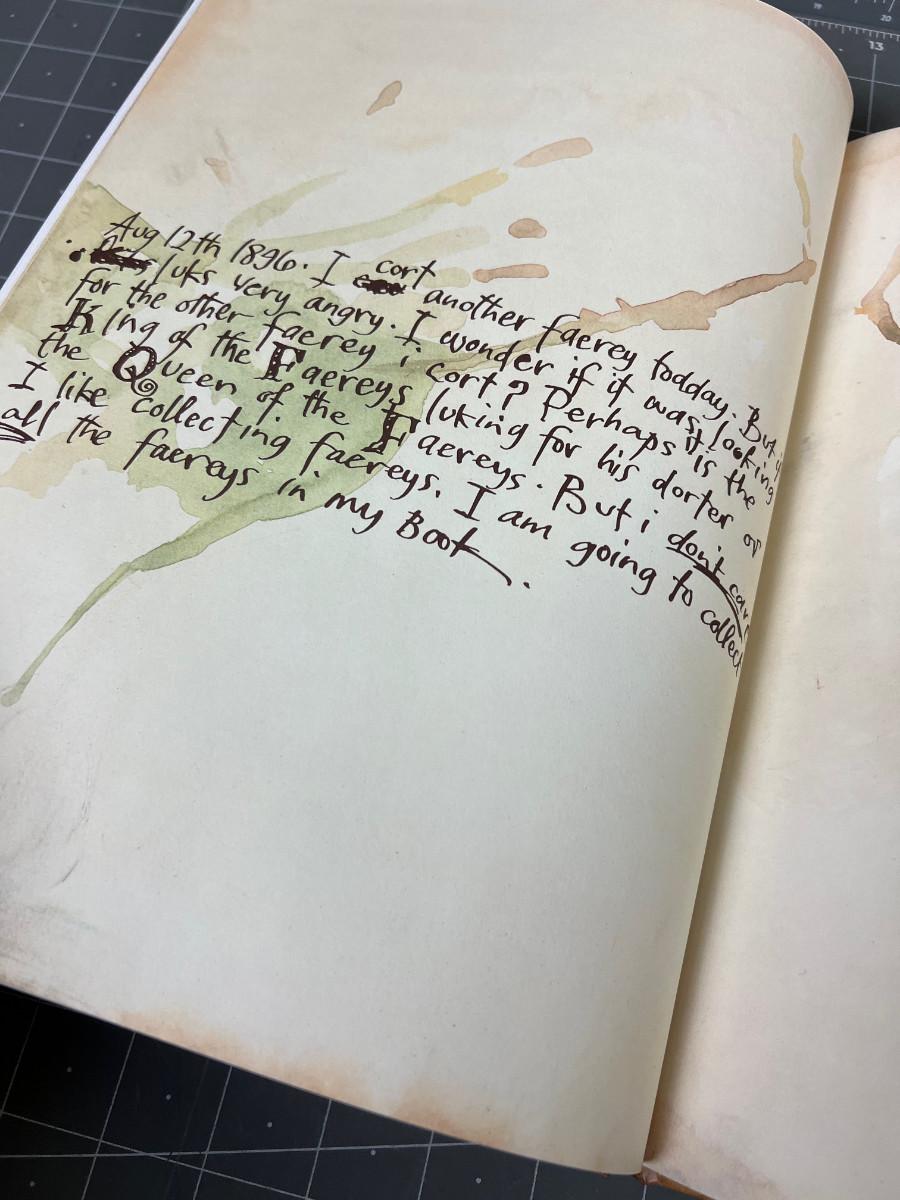 Aug 12th 1896. I cort another faerey todday. But it
luks very angry. I wonder if it was looking
for the other faerey i cort? Perhaps it is the
King of the Faereys luking for his dorter or
the Queen of the Faereys. But i don't care
I like collecting faereys. I am going to collect
all the faereys in my Book.
19
20
13